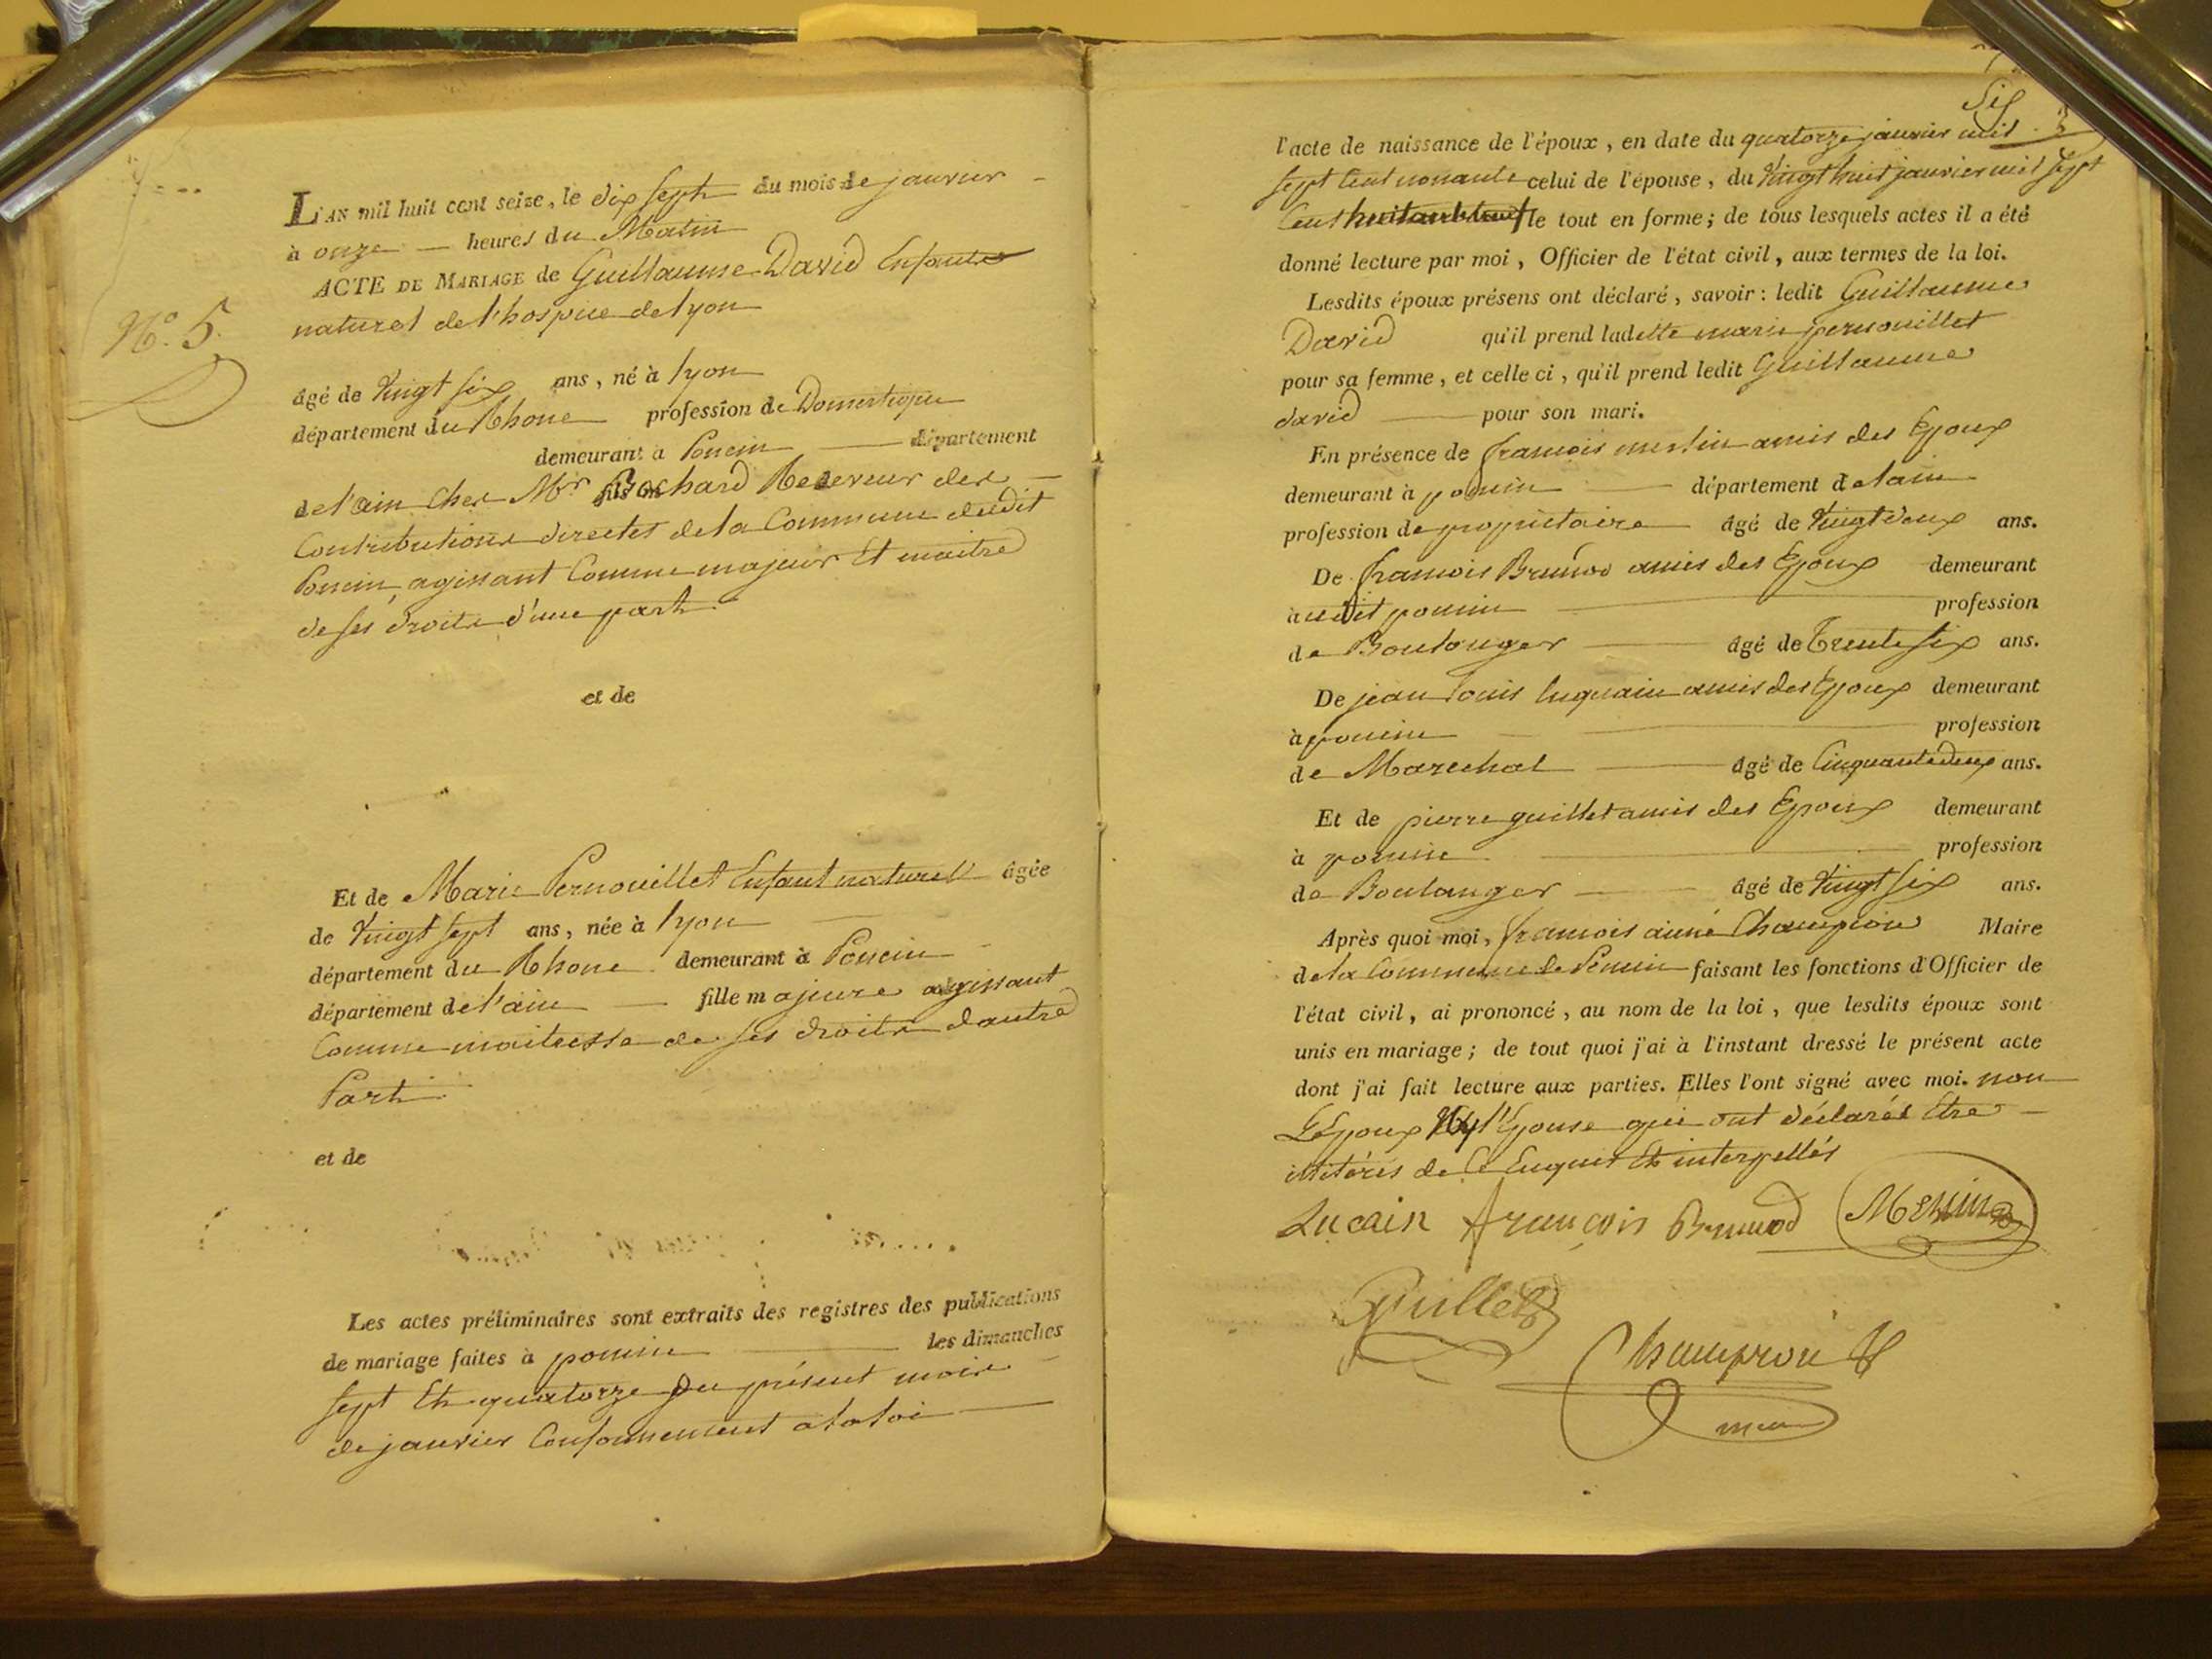 L'AN mil huit cent seize, le dix sept du mois de janvier
à onze heures du Matin
ACTE DE MARIAGE de Guillaume David Enfant
naturel de l'hospice de lyon
N.º 5.
âgé de vingt six ans, né à lyon
département du Rhone profession de Domestique
demeurant à Poncin département
de l'ain chez Mr Bochard Receveur des
Contributions directes de la Commune dudit
Poncin, agissant Comme majeur Et maitre
de ses droits d'une part
et de
Et de Marie Pernouillet Enfant naturel âgée
de vingt sept ans, née à lyon
département du Rhone demeurant à Poncin
département de l'ain fille majeure agissant
Comme maitresse de ses droits d'autre
Part
et de
Les actes préliminaires sont extraits des registres des publications
de mariage faites à poncin les dimanches
sept Et quatorze du présent mois
de janvier Conformement a la loi
Six
l'acte de naissance de l'époux, en date du quatorze janvier mil
sept Cent nonante celui de l'épouse, du vingt huit janvier mil sept
Cent huitante neuf le tout en forme; de tous lesquels actes il a été
donné lecture par moi, Officier de l'état civil, aux termes de la loi.
Lesdits époux présens ont déclaré, savoir: ledit Guillaume
David qu'il prend ladette marie pernouillet
pour sa femme, et celle ci, qu'il prend ledit Guillaume
david pour son mari.
En présence de francois amis des Epoux
demeurant à poncin département de lain
profession de propriétaire âgé de vingt deux ans.
De francois Brunod amis des Epoux demeurant
audit poncin profession
de Boulanger âgé de Trente six ans.
De jean louis luquain amis des Epoux demeurant
à poncin profession
de Marechal âgé de Cinquante deux ans.
Et de pierre guillet amis des Epoux demeurant
à poncin profession
de Boulanger âgé de vingt six ans.
Après quoi moi, francois aimé Champion Maire
de la Commune de Poncin faisant les fonctions d'Officier de
l'état civil, ai prononcé, au nom de la loi, que lesdits époux sont
unis en mariage; de tout quoi j'ai à l'instant dressé le présent acte
dont j'ai fait lecture aux parties. Elles l'ont signé avec moi. non
L'Epoux Ny l'Epouse qui ont déclarés Etre
illitérés de Ce Enquis Et interpellés
Lucain françois Brunod
Guillet
Champion